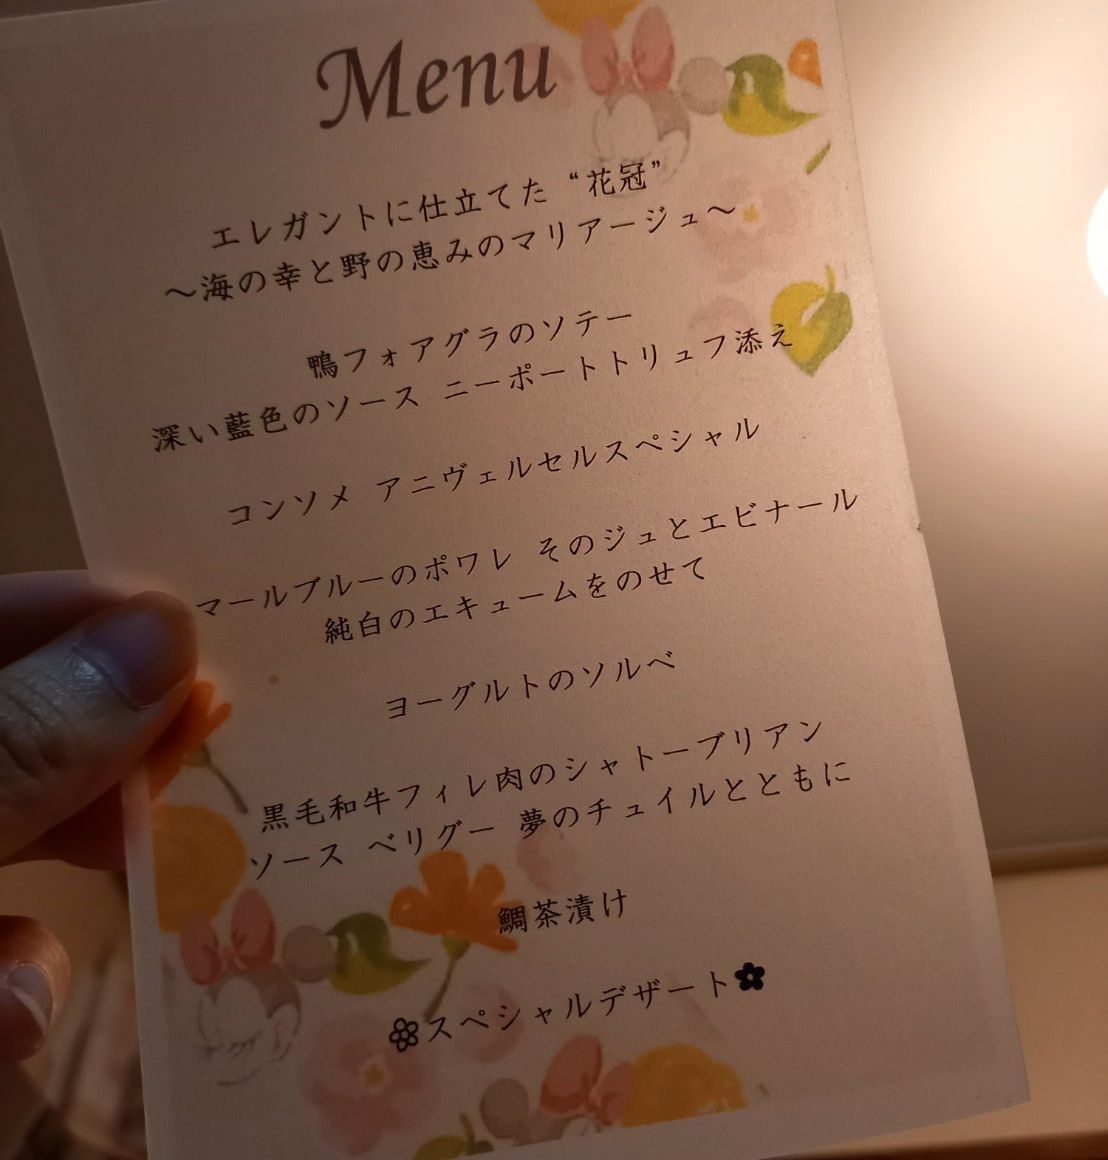 Menu
エレガントに仕立てた “花冠”
～海の幸と野の恵みのマリアージュ～
鴨フォアグラのソテー
深い藍色のソース ニーポートトリュフ添え
コンソメ アニヴェルセルスペシャル
マールブルーのポワレ そのジュとエピナール
純白のエキュームをのせて
ヨーグルトのソルベ
黒毛和牛フィレ肉のシャトーブリアン
ソース ペリグー 夢のチュイルとともに
鯛茶漬け
❀スペシャルデザート✿